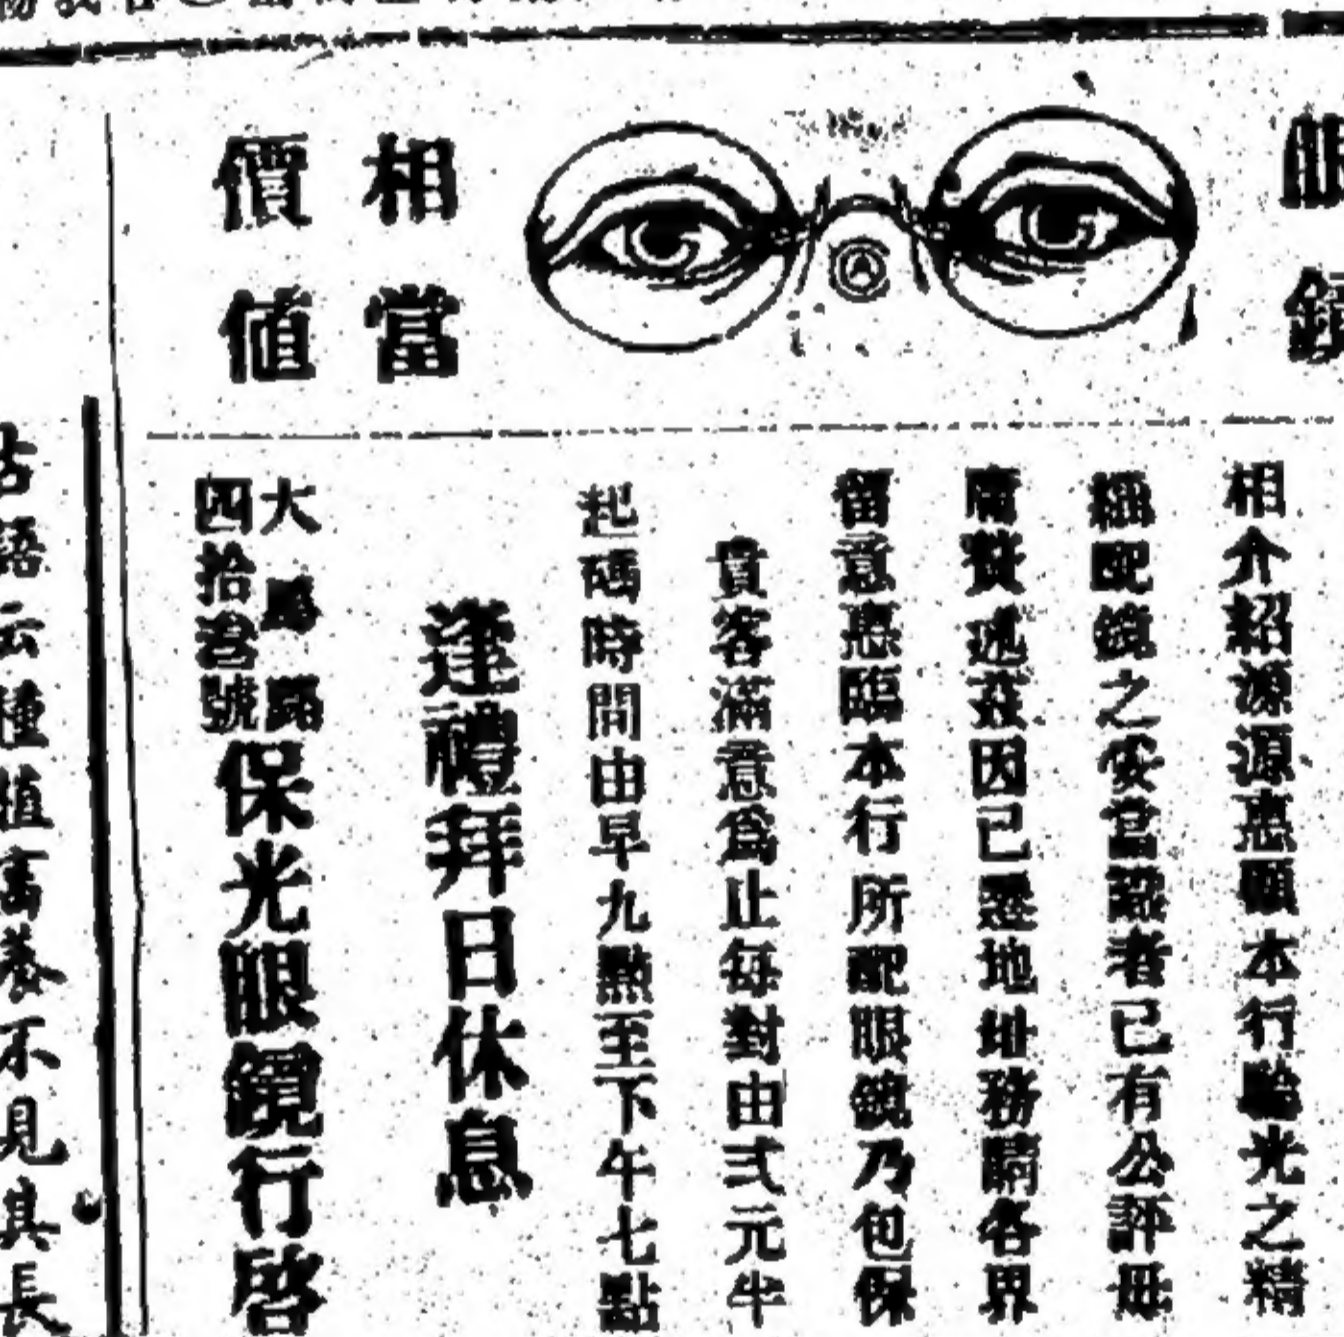 眼鏡
相當
價值
相介紹源源惠顧本行驗光之精
細配鏡之妥當識者已有公評毋
庸贅述茲因已遷地址務請各界
留意惠臨本行所配眼鏡乃包保
貴客滿意為止每對由弍元半
起碼時間由早九點至下午七點
逢禮拜日休息
大馬路
四拾叁號
保光眼鏡行啓
古語云種植高養不見其長